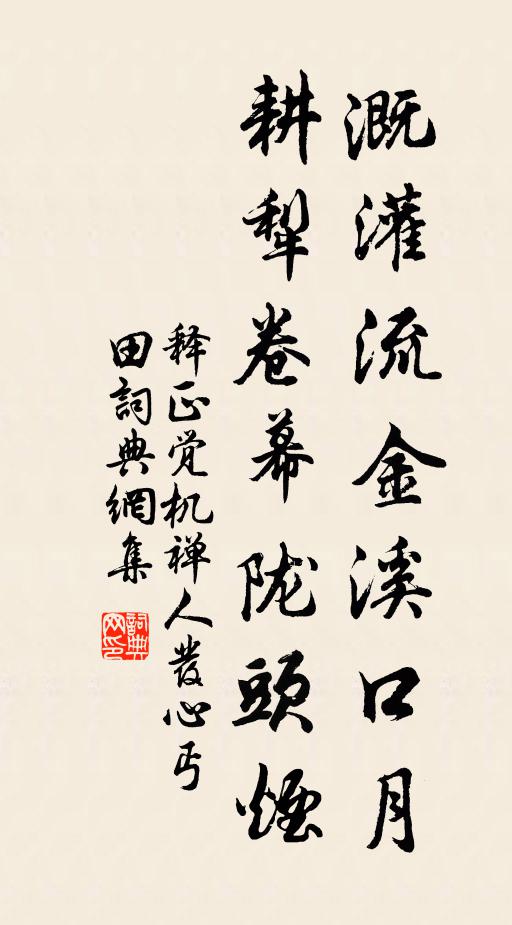 溉灌流金溪口月
耕犁卷幕陇頭煙
释正觉机禅人发心丐
田詞典網集
詞典网印